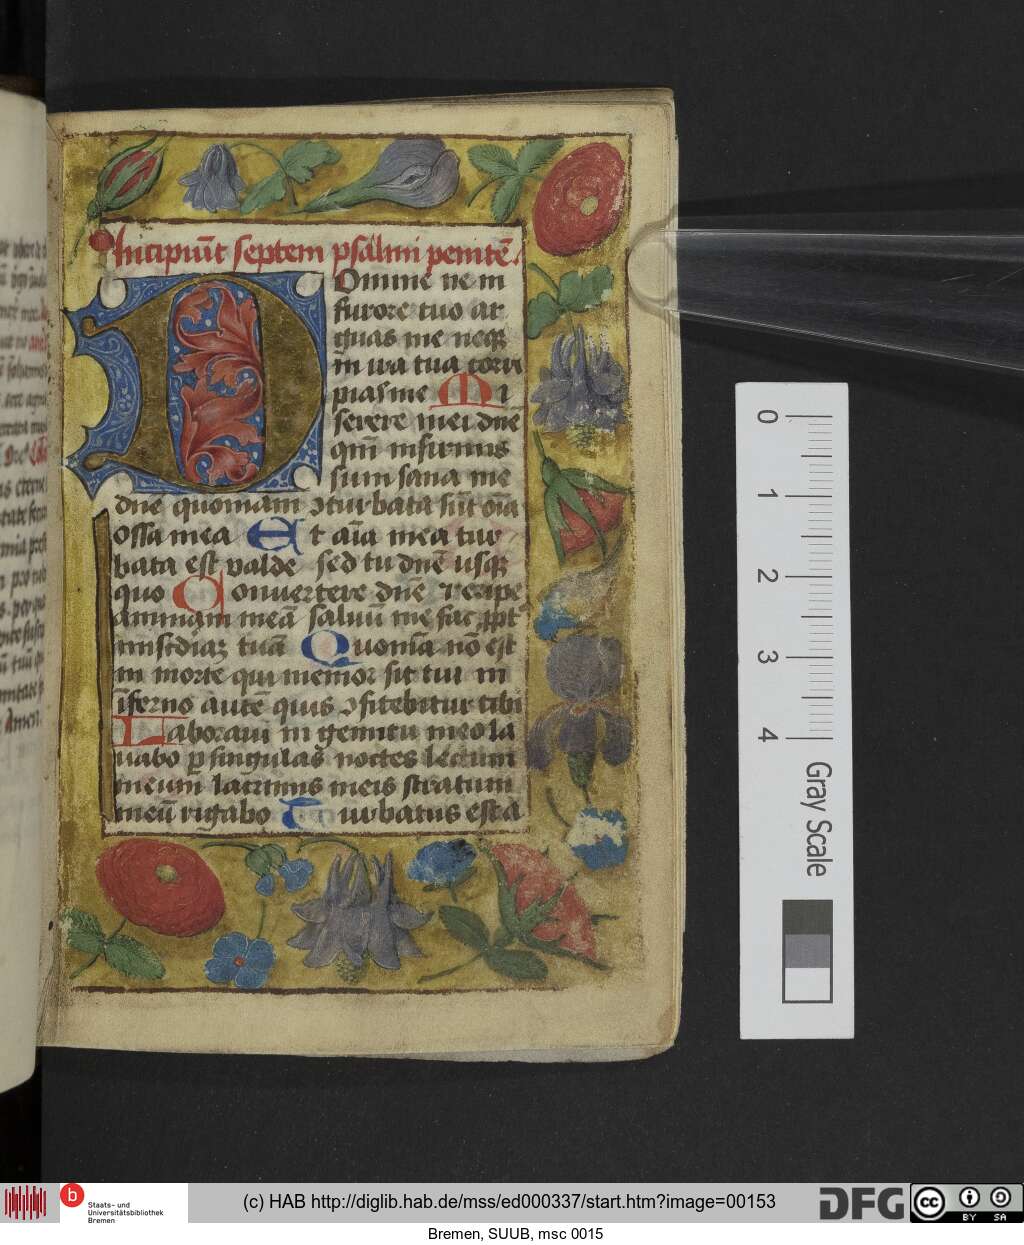 Incipiūt septem psalmi penitē.
Domine ne in
furore tuo ar
guas me neqꝫ
in ira tua corri
pias me Mi
serere mei dn̄e
qm̄ infirmus
sum sana me
dn̄e quoniam ↄturbata sūt oīa
ossa mea Et aīa mea tur
bata est valde sed tu dn̄e usqꝫ
quo Convertere dn̄e ⁊ eripe
animam meā saluū me fac ꝓpt
misc̄diaꝫ tuā Quoniā nō est
in morte qui memor sit tui in
īferno autē quis ↄfitebitur tibi
Laboraui in gemitu meo la
uabo ꝑ singulas noctes lectum
meum lacrimis meis stratum
meū rigabo Turbatus est a
0
1
2
3
4
Gray Scale
b
Staats- und
Universitätsbibliothek
Bremen
(c) HAB http://diglib.hab.de/mss/ed000337/start.htm?image=00153
DFG
cc
BY SA
Bremen, SUUB, msc 0015